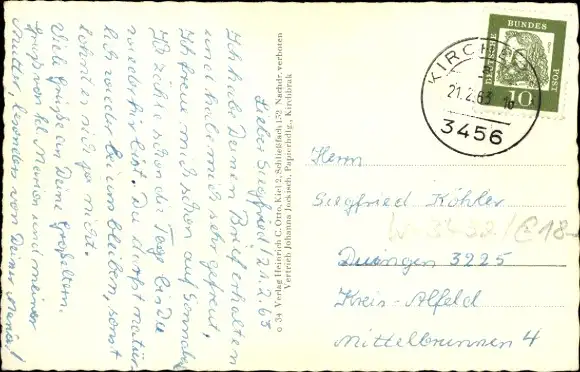 Lieber Siegfried! 21.2.63
Ich habe Deinen Brief erhalten
und habe mich sehr gefreut,
Ich freue mich schon auf Sonnabend
Ich zähle schon die Tage bis Du
wieder hier bist. Du darfst natür-
lich wieder bei uns bleiben, sonst
kommen nicht.
Viele Grüße an Deine Großeltern.
Gruß von und meiner
Mutter, besonders von Deiner
o 34 Verlag Heinrich C. Otto, Kiel 2, Schließfach 152 Nachdr. verboten
Vertrieb Johanna Jockisch, Papierhdlg., Kirchbrak
KIRCHBRAK
21.2.63
3456
DEUTSCHE
BUNDES
POST
10
Herrn
Siegfried Köhler
Duingen 3225
Kreis-Alfeld
Mittelbrunnen 4